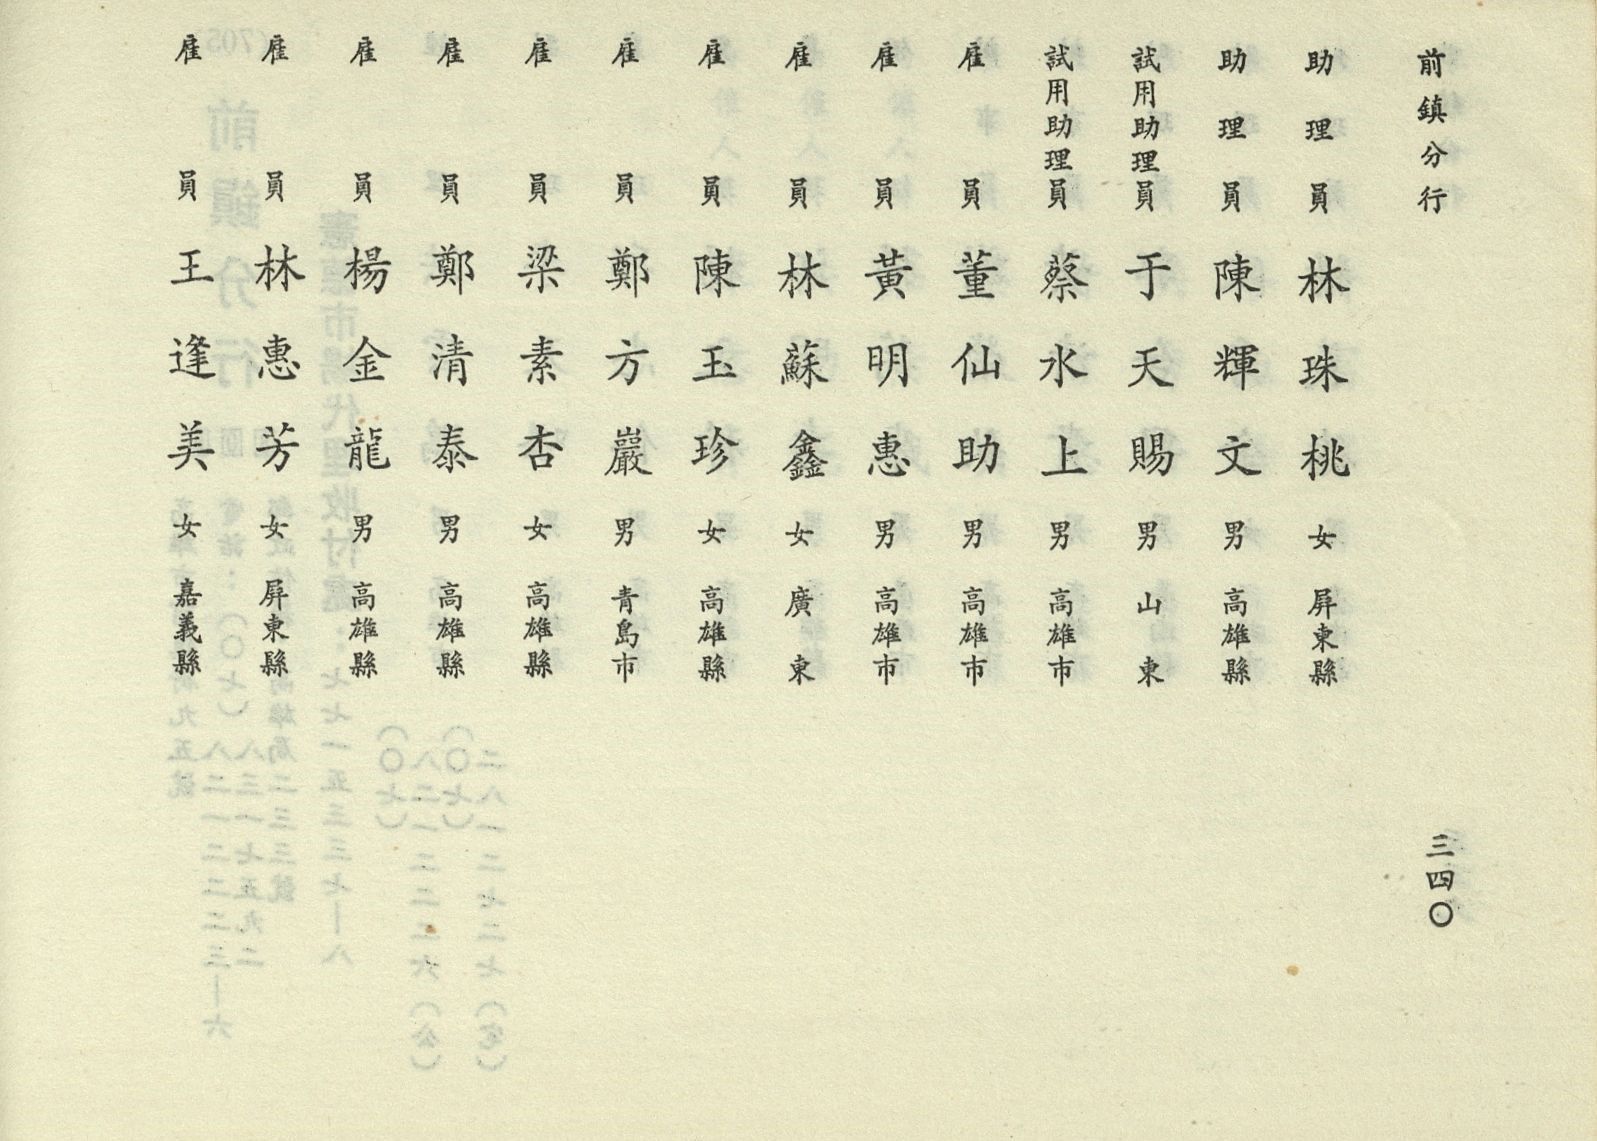 前鎮分行
三四〇
助理員 林珠桃 女 屏東縣
助理員 陳輝文 男 高雄縣
試用助理員 于天賜 男 山東
試用助理員 蔡水上 男 高雄市
雇員 董仙助 男 高雄市
雇員 黃明惠 男 高雄市
雇員 林蘇鑫 女 廣東
雇員 陳玉珍 女 高雄縣
雇員 鄭方巖 男 青島市
雇員 梁素杏 女 高雄縣
雇員 鄭清泰 男 高雄縣
雇員 楊金龍 男 高雄縣
雇員 林惠芳 女 屏東縣
雇員 王逢美 女 嘉義縣